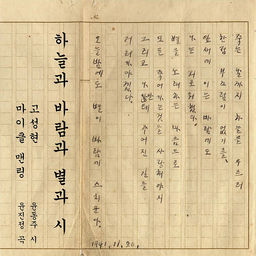 죽는 날까지 하늘을 우르러
한점 부끄럼이 없기를,
잎새에 이는 바람에도
나는 괴로워했다.
별을 노래하는 마음으로
모든 죽어가는것을 사랑해야지
그리고 나안테 주어진 길을
거러가야겠다.
오늘밤에도 별이 바람에 스치운다.
1941. 11. 20.
하늘과 바람과 별과 시
고성현
마이클 맨링
윤동주 시
윤진정 곡